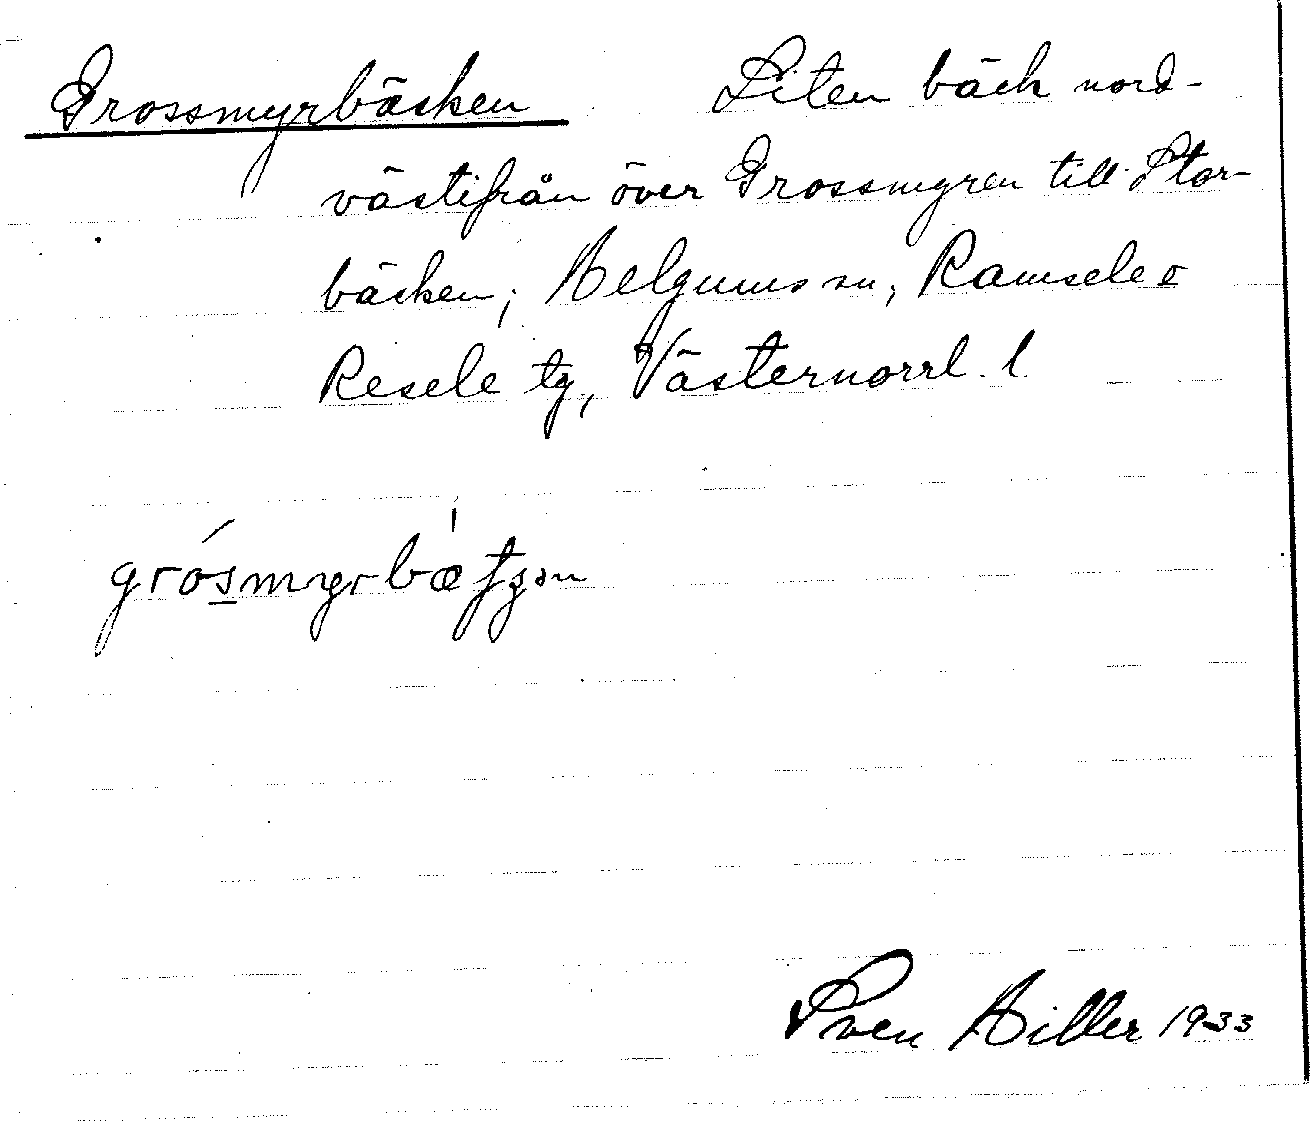 Grossmyrbäcken Liten bäck nord-
västifrån över Grossmyren till Stor-
bäcken; Helgums sn, Ramsele o
Resele tg, Västernorrl. l
Sven Hiller 1933